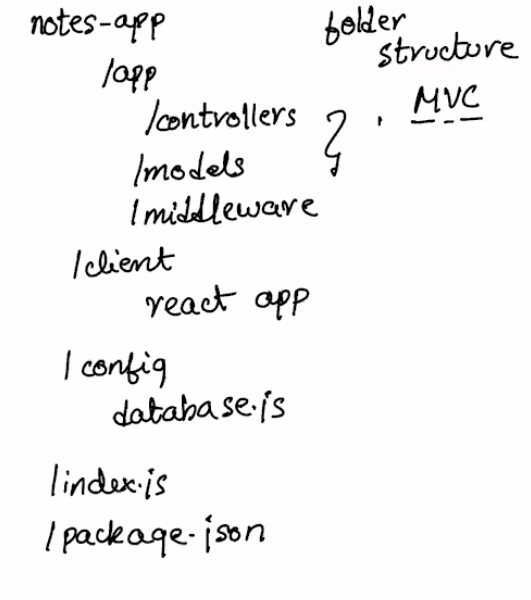 notes-app
folder structure
/app
/controllers
MVC
/models
/middleware
/client
react app
/config
database.js
/index.js
/package.json